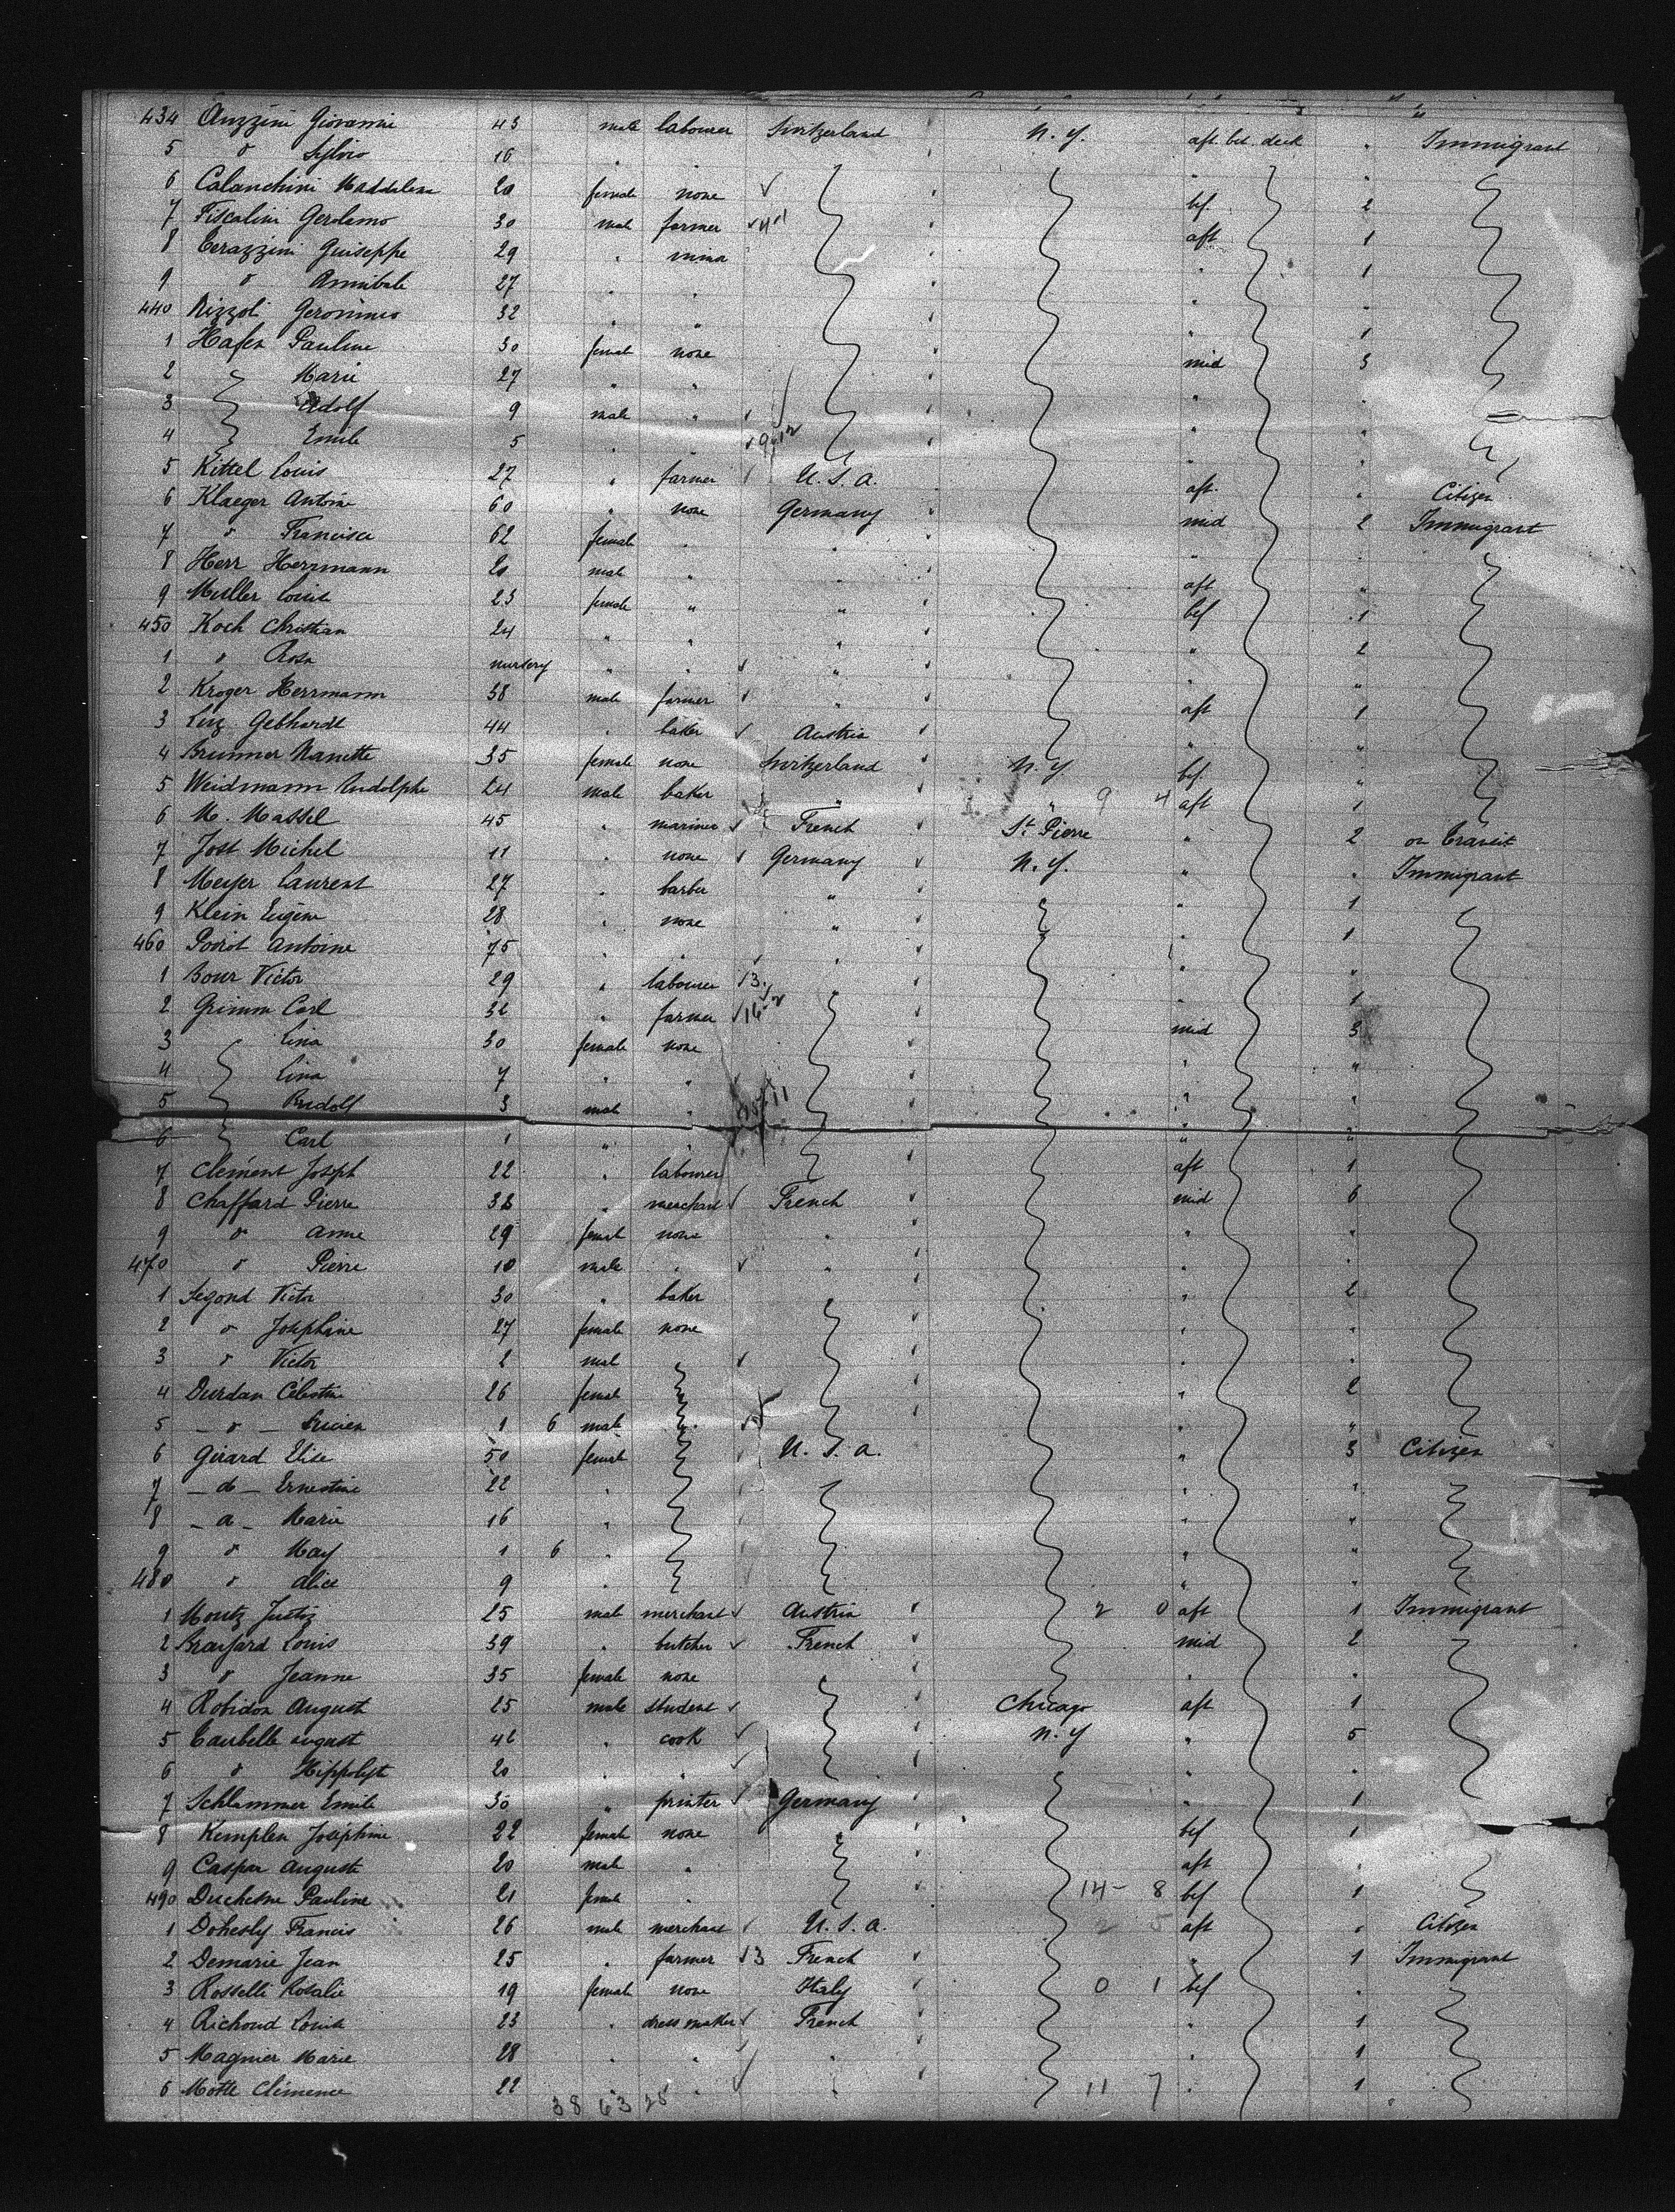 434 Anzzini Giovanni 43 male labourer Switzerland N. Y. aft. bet. deck " Immigrant
5 " Sylvio 16 "
6 Calanchini Maddalena 20 female none bef. 2
7 Fiscalini Gerolamo 30 male farmer aft 1
8 Cerazzini Guiseppe 29 " " 1
9 " Annibale 27 " " "
440 Rizzoli Geronimo 32 " " " 1
1 Hafen Pauline 30 female none mid 3
2 Marie 27 " " " "
3 Adolf 9 male " " "
4 Emile 5 " " "
5 Kittel Louis 27 " farmer U. S. A. aft. " Citizen
6 Klaeger Antoine 60 " none Germany mid 2 Immigrant
7 " Francisca 62 female " " " "
8 Herr Herrmann 20 male " " aft "
9 Muller Louise 23 female " " bef 1
450 Koch Christian 24 " " " " 2
1 " Rosa nursery " " " " "
2 Kroger Herrmann 38 male farmer " aft 1
3 Linz Gebhardt 44 " baker Austria " "
4 Brunner Nanette 35 female none Switzerland N. Y. bef. "
5 Weidmann Rudolphe 24 male baker " " 9 4 aft 1
6 M. Massel 45 " mariner French St. Pierre " 2 on Transit
7 Jost Michel 11 " none Germany N. Y. " " Immigrant
8 Meyer Laurent 27 " barber " " 1
9 Klein Eugène 28 " none " " 1
460 Poirot Antoine 75 " " " " "
1 Bour Victor 29 " labourer 3 " " 1
2 Grimm Carl 32 " farmer mid 3
3 Lina 30 female none " "
4 Lina 7 " " " "
5 Rudolf 3 male " " "
6 Carl 1 " " " "
7 Clément Joseph 22 " labourer aft 1
8 Chaffard Pierre 32 " merchant French mid 6
9 " Anna 29 female none " " "
470 " Pierre 10 male " " " "
1 Segond Victor 30 " baker " 2
2 " Josephine 27 female none " "
3 " Victor 2 male " "
4 Durdan Célestine 26 female " 2
5 " Lucien 1 6 male " "
6 Girard Elise 50 female U. S. A. " 3 Citizen
7 _ do _ Ernestine 22 " " "
8 _ d _ Marie 16 " " "
9 " May 1 6 " " "
480 " Alice 9 " " "
1 Moutz Justiz 25 male merchant Austria 2 0 aft 1 Immigrant
2 Louis 39 " butcher French mid 2
3 " Jeanne 35 female none " "
4 Robidon August 25 male student Chicago aft 1
5 Caubelle august 42 " cook N. Y " 5
6 " Hippolyte 20 " " " "
7 Schlammer Emile 30 " printer Germany " 1
8 Kemplen Joséphine 22 female none bef 1
9 Caspar Auguste 20 male " aft "
490 Duchesne Pauline 21 female " 14 - 8 bef 1
1 Dohesly Francis 26 male merchant U. S. A. aft " Citizen
2 Demarie Jean 25 " farmer 3 French " 1 Immigrant
3 Rosselli Rosalie 19 female none Italy 0 1 bef "
4 Richoud Louise 23 " dress maker French " 1
5 Magnier Marie 28 " " " " 1
6 Motte Clémence 22 " " " 11 7 " 1
38 63 28